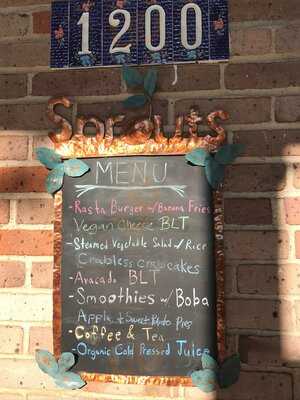 1200
Sprouts
MENU
-Rasta Burger w/ Banana Fries
Vegan Cheese BLT
-Steamed Vegetable Salad w/ Rice
Crabless Crabcakes
-Avacado BLT
-Smoothies w/ Boba
Apple & Sweet Potato Pies
-Coffee & Tea
-Organic Cold Pressed Juice